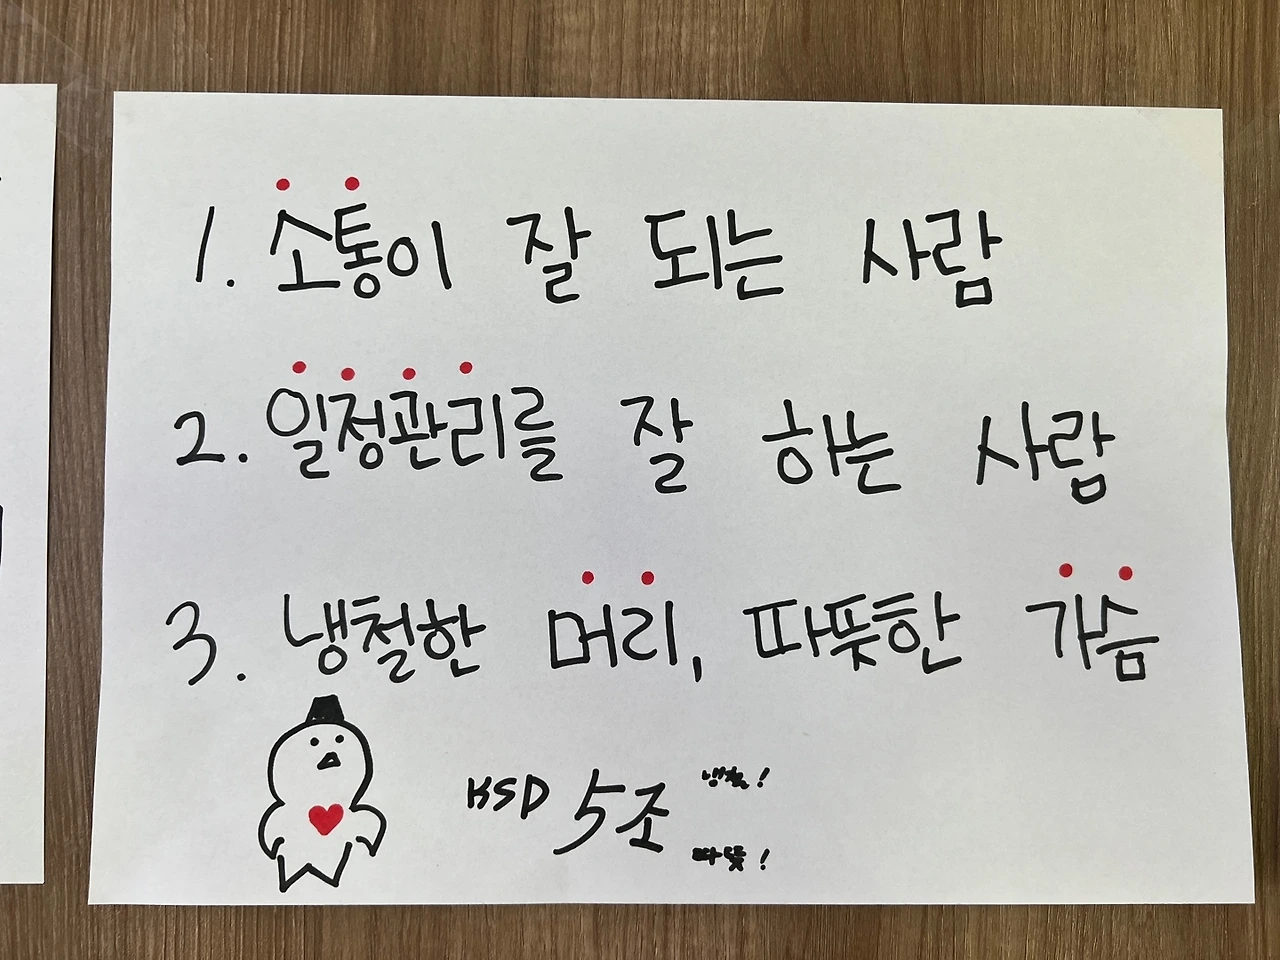 1. 소통이 잘 되는 사람
2. 일정관리를 잘 하는 사람
3. 냉철한 머리, 따뜻한 가슴
KSD 5조
냉철!
따뜻!